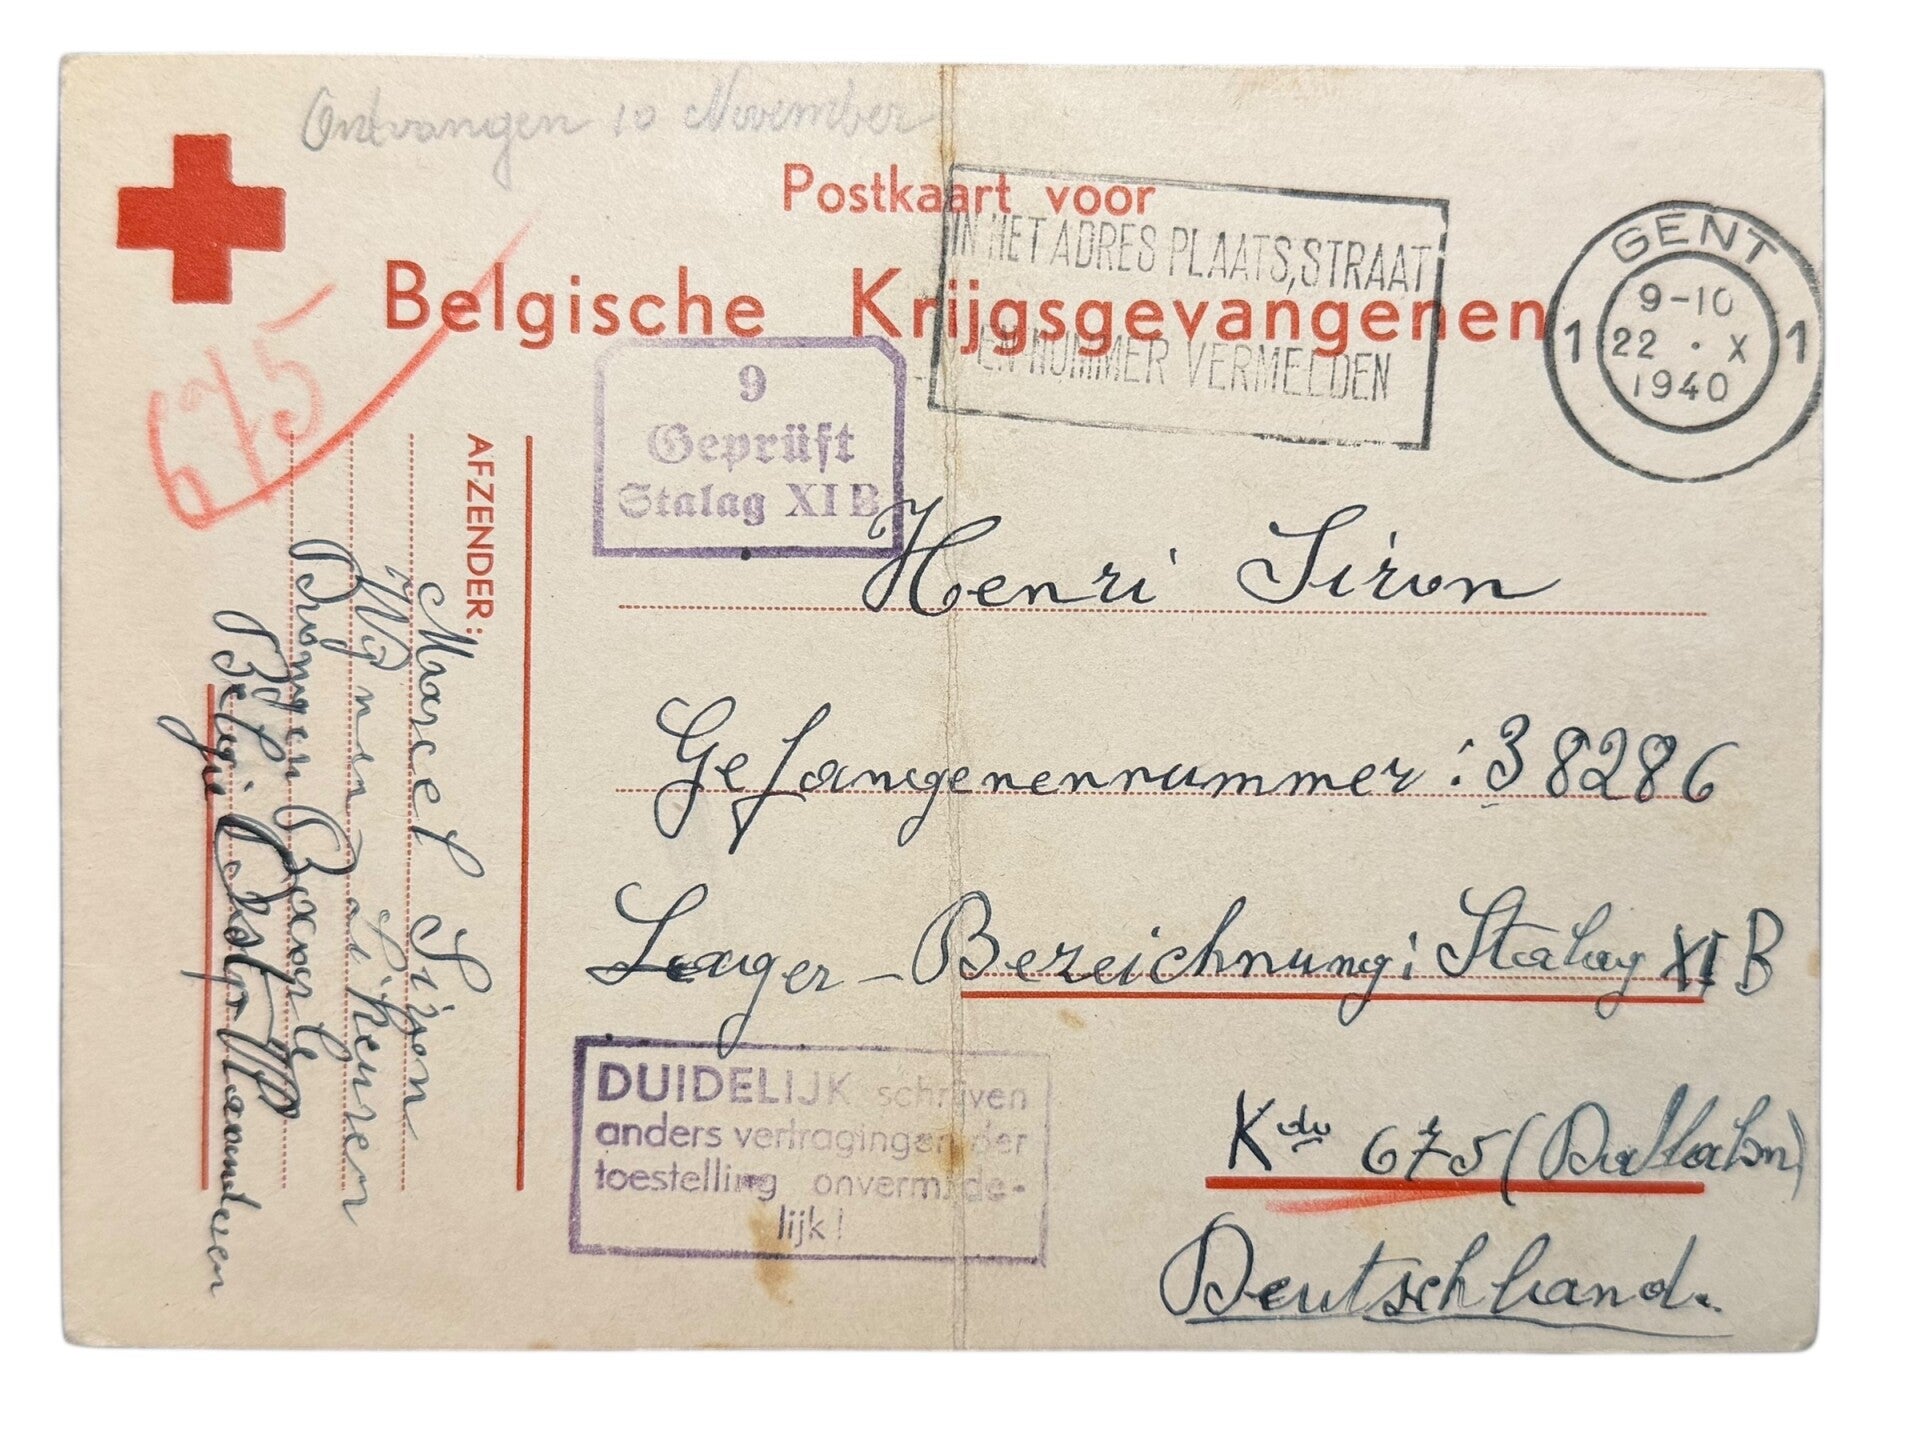 Ontvangen 10 November
Postkaart voor
Belgische Krijgsgevangenen
IN HET ADRES PLAATS, STRAAT
EN NUMMER VERMELDEN
GENT
1 1
9-10
22 • X
1940
675
9
Geprüft
Stalag XI B
AFZENDER:
Marcel Siron
Brongen Baarle
België
Henri Siron
Gefangenennummer: 38286
Lager-Bezeichnung: Stalag XI B
Kdo 675
Deutschland.
DUIDELIJK schrijven
anders vertragingen der
toestelling onvermijde-
lijk!